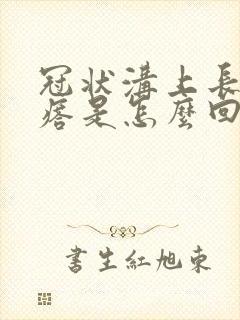 冠状溝上長
痞是怎麼回
書生紅旭東